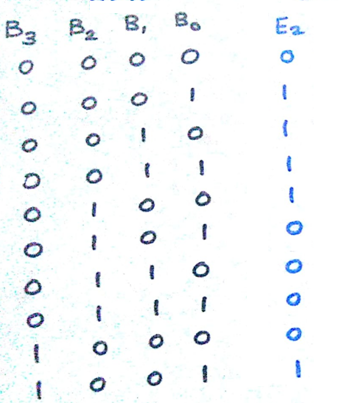 B₃ B₂ B₁ B₀ E₂
0 0 0 0 0
0 0 0 1 1
0 0 1 0 1
0 0 1 1 1
0 1 0 0 1
0 1 0 1 0
0 1 1 0 0
0 1 1 1 0
1 0 0 0 0
1 0 0 1 1